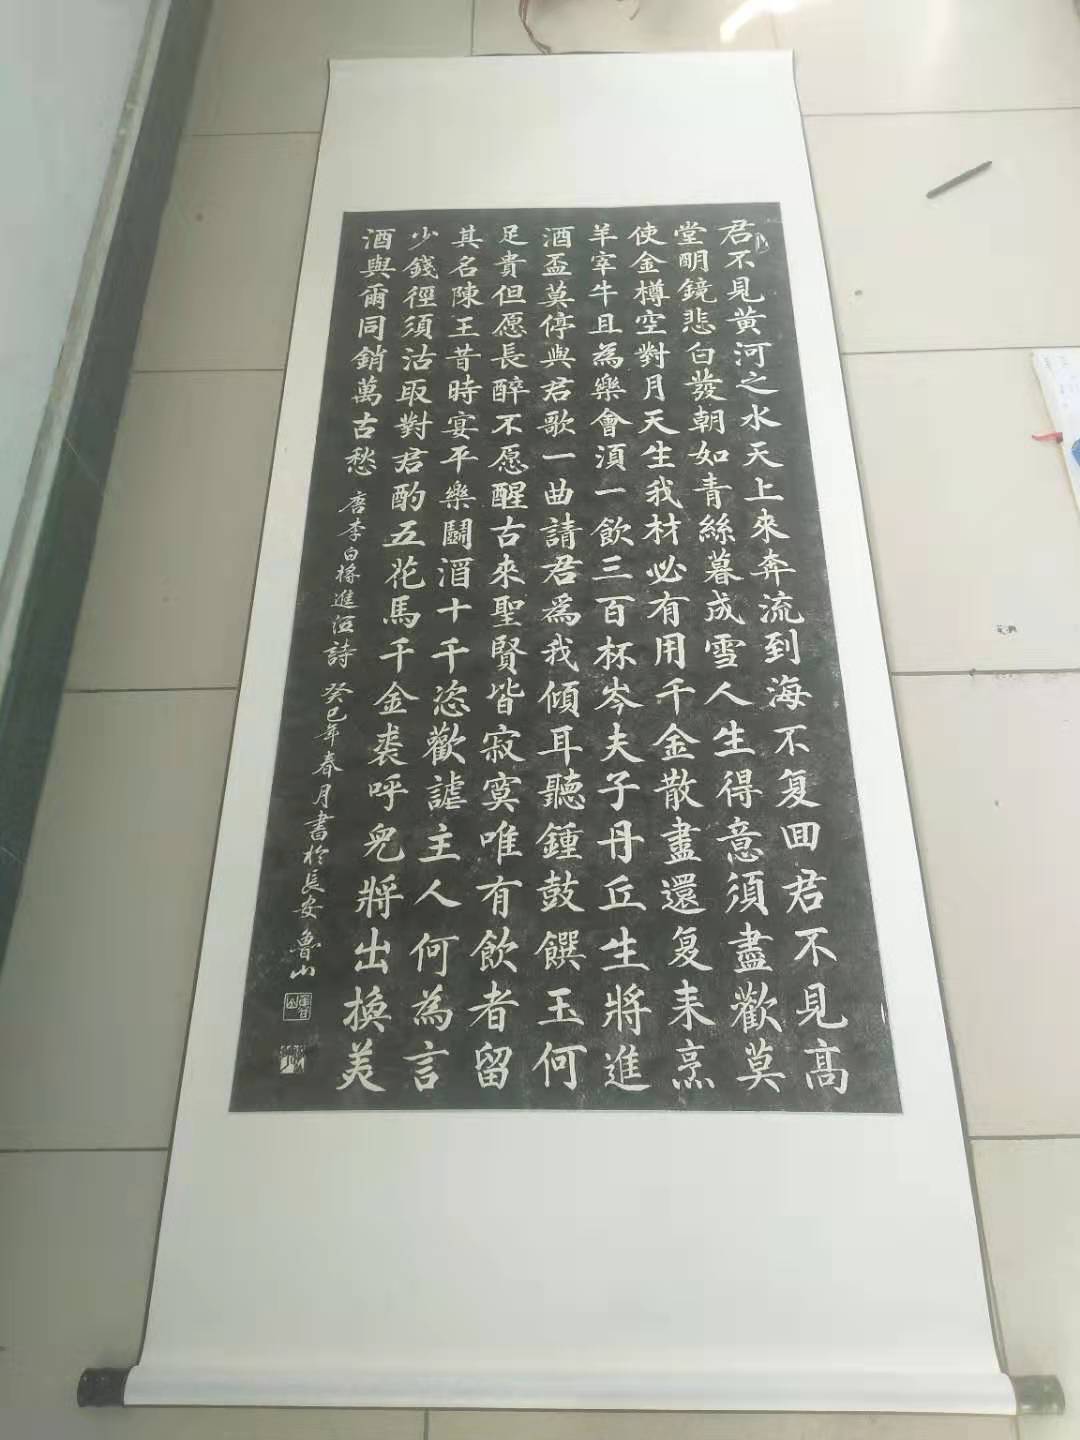 君不見黄河之水天上來奔流到海不复回君不見高
堂明鏡悲白發朝如青絲暮成雪人生得意須盡歡莫
使金樽空對月天生我材必有用千金散盡還复来烹
羊宰牛且為樂會湏一飲三百杯岑夫子丹丘生將進
酒盃莫停與君歌一曲請君為我傾耳聽鍾鼓饌玉何
足貴但愿長醉不愿醒古來聖賢皆寂寞唯有飲者留
其名陳王昔時宴平樂鬪酒十千恣歡謔主人何為言
少錢徑須沽取對君酌五花馬千金裘呼兒將出換美
酒與爾同銷萬古愁 唐李白將進酒詩 癸巳年春月書於長安 魯山